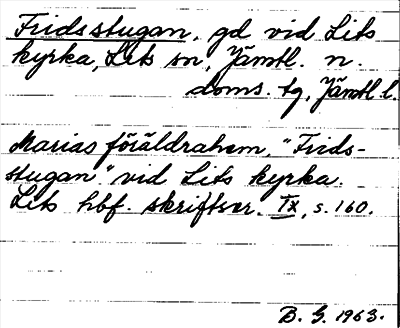 Fridsstugan, gd vid Lits
kyrka, Lits sn, Jämtl. n.
doms. tg, Jämtl. l.
Marias föräldrahem, "Frids-
stugan" vid Lits kyrka.
Lits hbf. skriftser. IX, s. 160.
B. G. 1963.